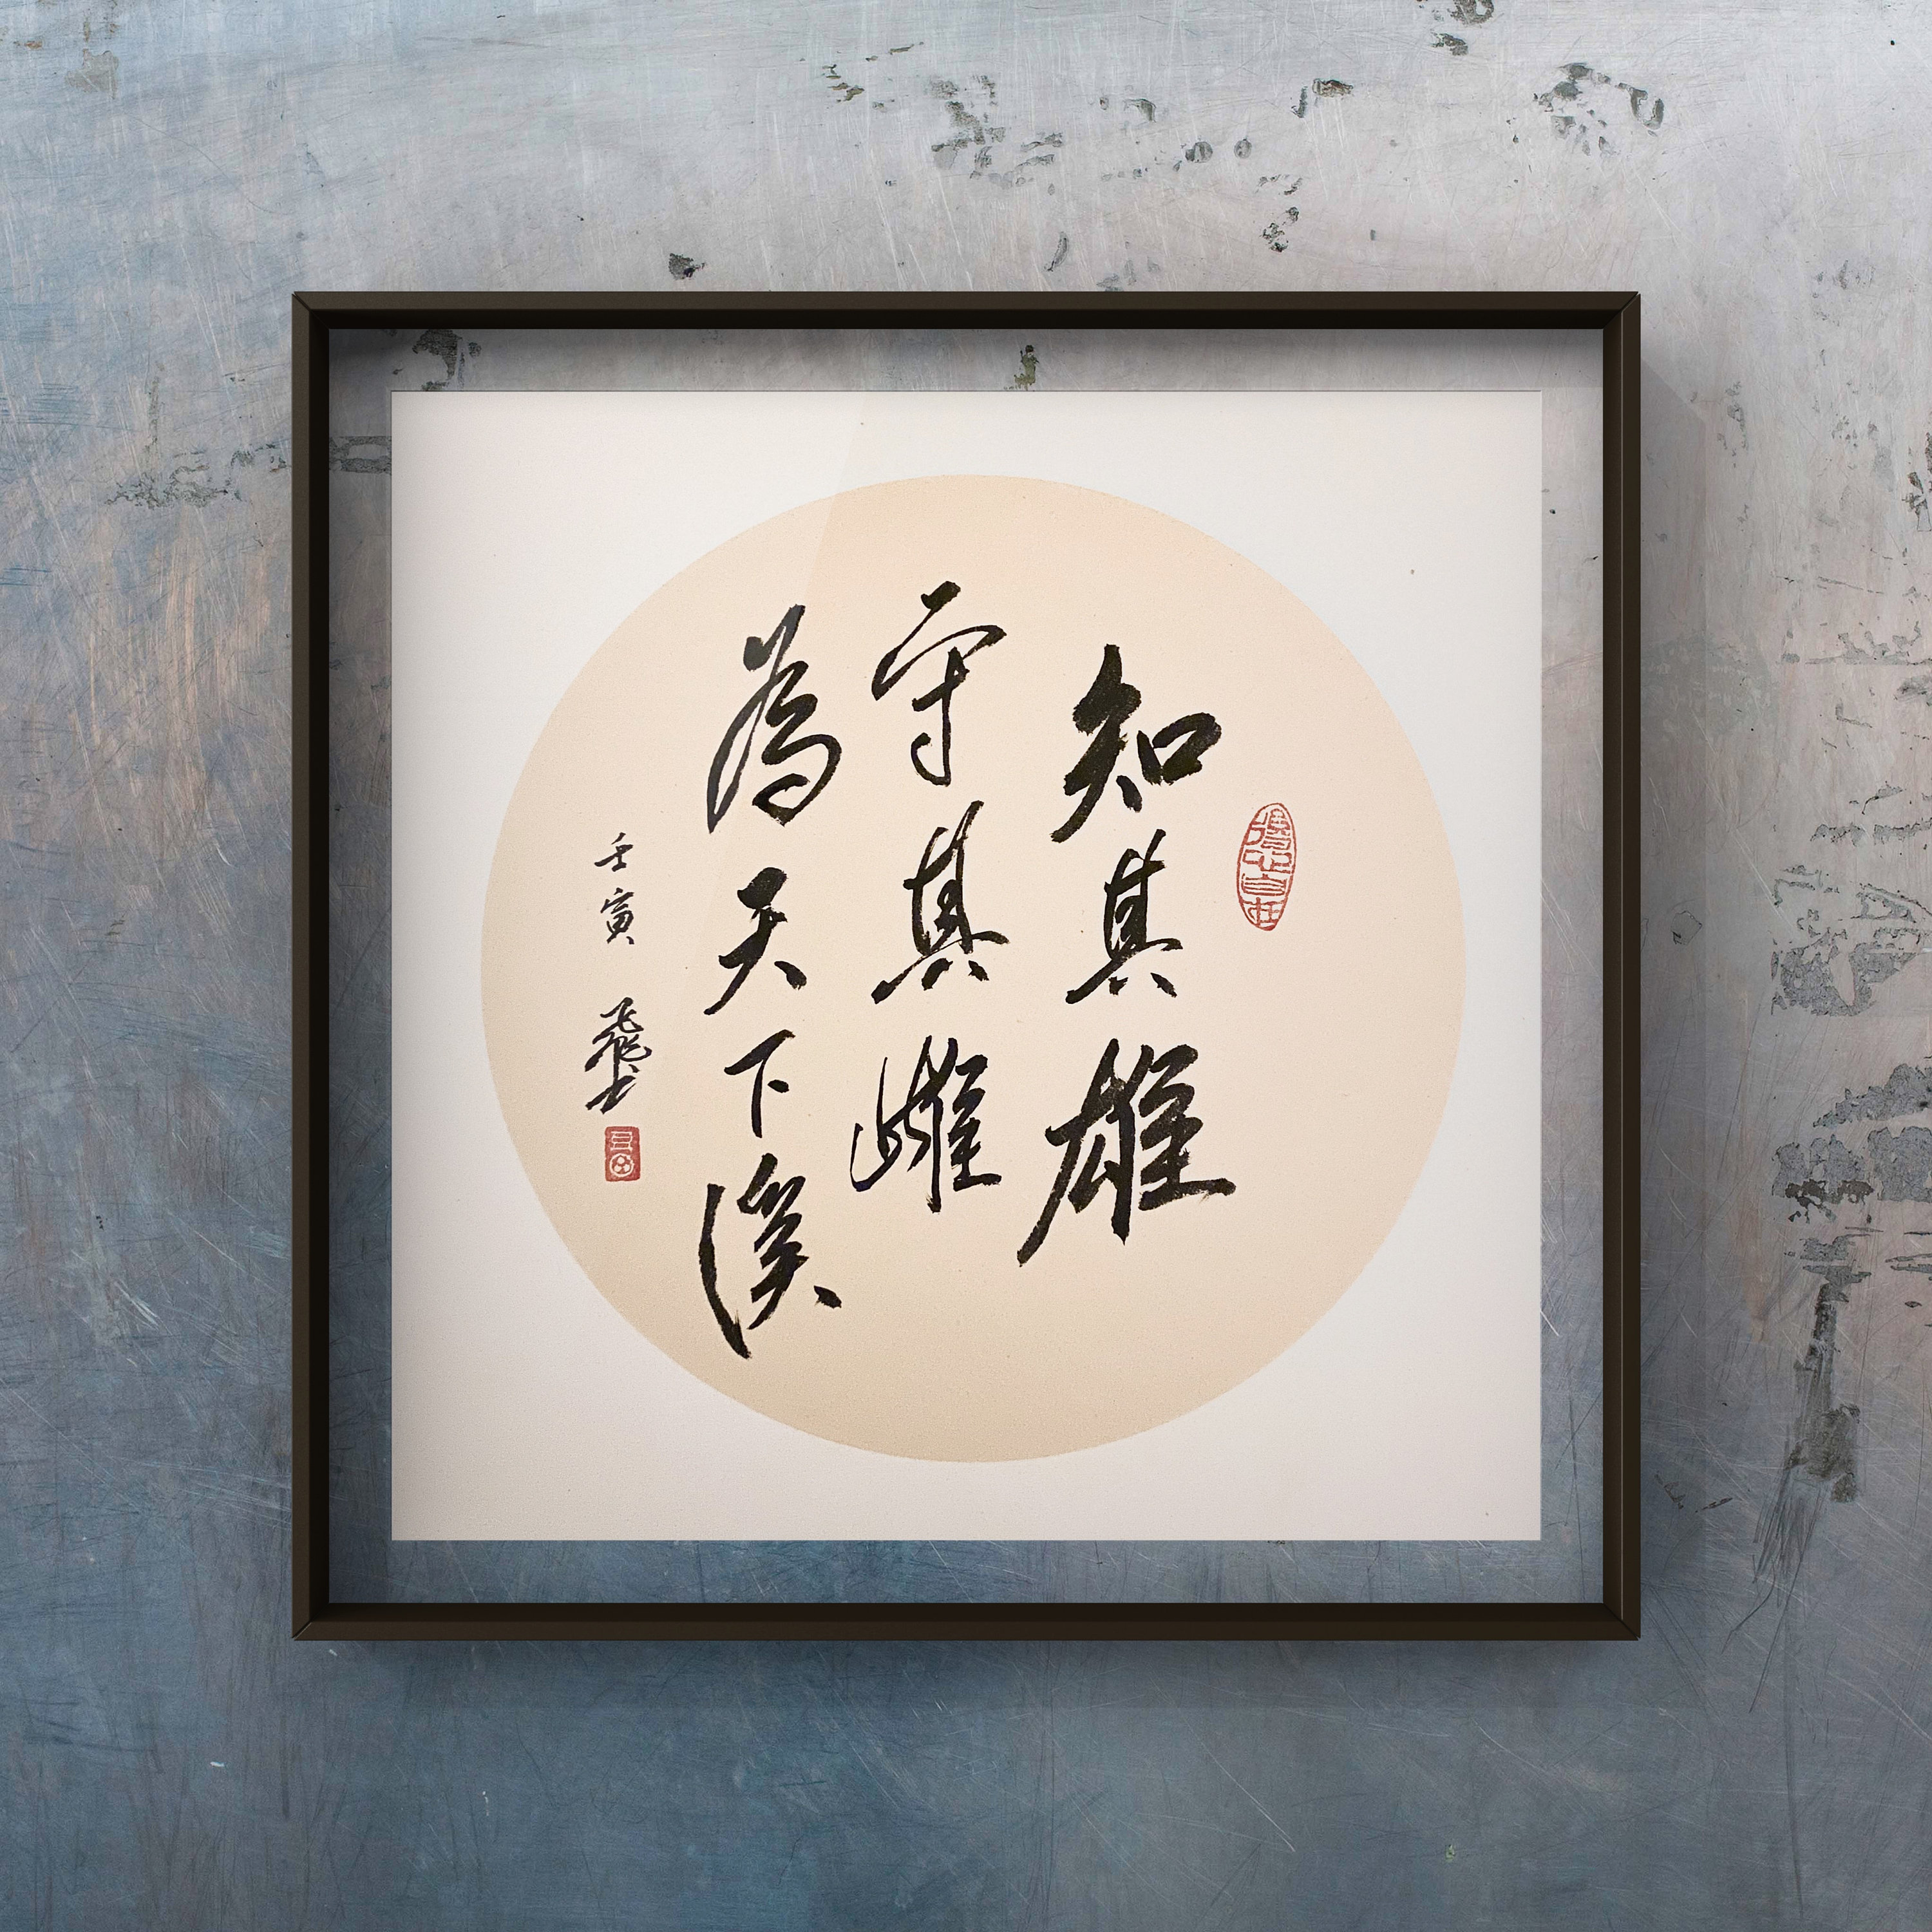 知其雄
守其雌
為天下溪
壬寅 飛